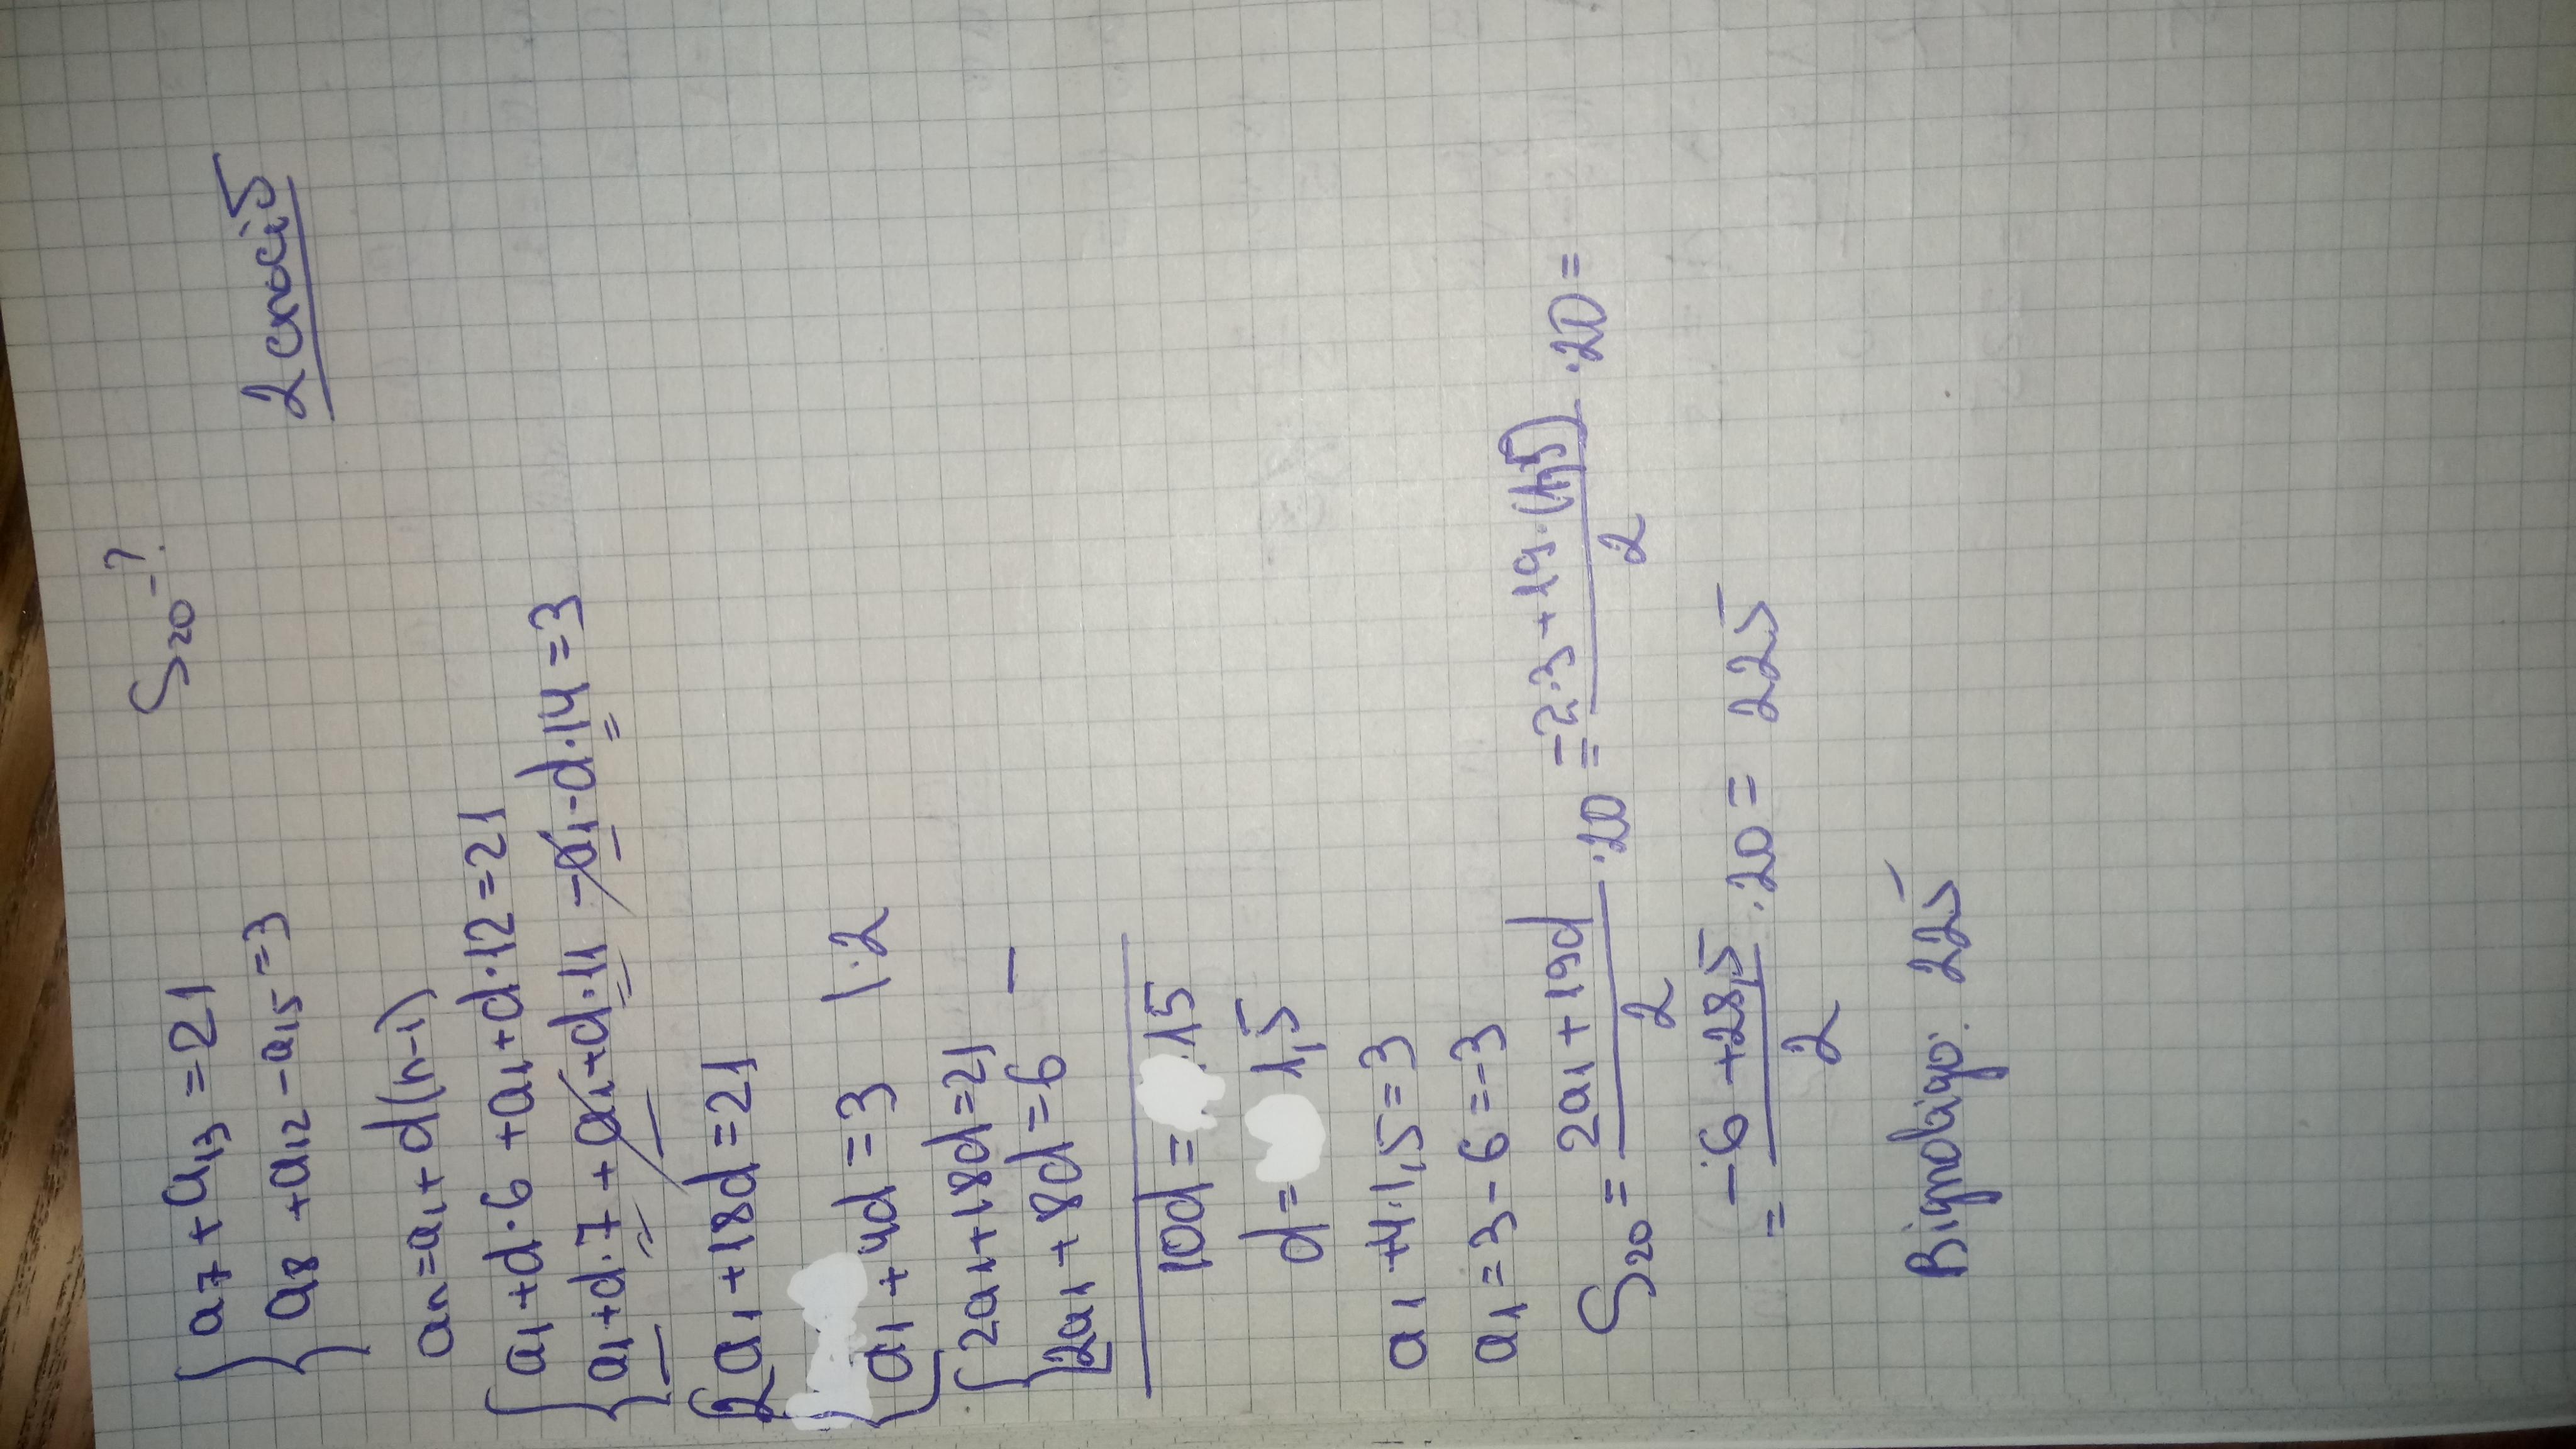 { a₇ + a₁₃ = 21     S₂₀ - ?
{ a₈ + a₁₂ - a₁₅ = 3     2 спосіб
aₙ = a₁ + d(n-1)
{ a₁ + d·6 + a₁ + d·12 = 21
{ a₁ + d·7 + a₁ + d·11 - a₁ - d·14 = 3
{ 2a₁ + 18d = 21
{ a₁ + 4d = 3 |·2
{ 2a₁ + 18d = 21
{ 2a₁ + 8d = 6 —
10d = 15
d = 1,5
a₁ + 4·1,5 = 3
a₁ = 3 - 6 = -3
S₂₀ = (2a₁ + 19d)/2 · 20 = (-2·3 + 19·(1,5))/2 · 20 =
= (-6 + 28,5)/2 · 20 = 225
Відповідь: 225